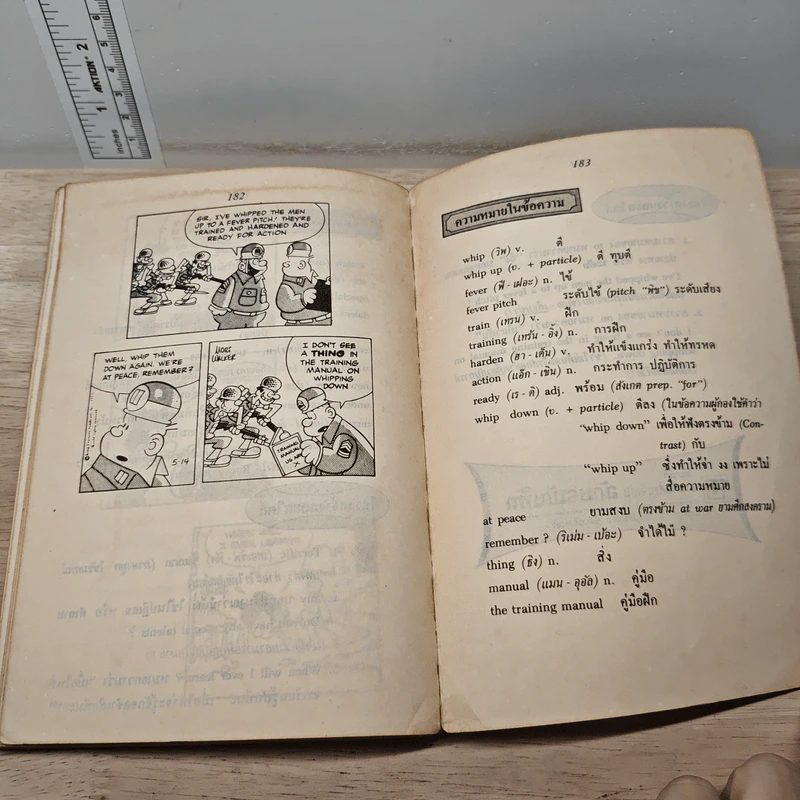 182
SIR, I'VE WHIPPED THE MEN
UP TO A FEVER PITCH! THEY'RE
TRAINED AND HARDENED AND
READY FOR ACTION
WELL, WHIP THEM
DOWN AGAIN. WE'RE
AT PEACE, REMEMBER?
5-14
MORT
WALKER
I DON'T SEE
A THING IN
THE TRAINING
MANUAL ON
WHIPPING
DOWN
TRAINING
MANUAL
183
ความหมายในข้อความ
whip (วิพ) v. ตี
whip up (v. + particle) ตี ทุบตี
fever (ฟี - เฝอะ) n. ไข้
fever pitch ระดับไข้ (pitch "พิช") ระดับเสียง
train (เทรน) v. ฝึก
training (เทร้น - อิ้ง) n. การฝึก
harden (ฮา - เด้น) v. ทำให้แข็งแกร่ง ทำให้ทรหด
action (แอ๊ก - เชิ่น) n. กระทำการ ปฏิบัติการ
ready (เร - ดิ) adj. พร้อม (สังเกต prep. "for")
whip down (v. + particle) ตีลง (ในข้อความผู้กองใช้คำว่า
"whip down" เพื่อให้ฟังตรงข้าม (Con-
trast) กับ
"whip up" ซึ่งทำให้จ่า งง เพราะไม่
สื่อความหมาย
at peace ยามสงบ (ตรงข้าม at war ยามศึกสงคราม)
remember ? (ริเม่ม - เบ้อะ) จำได้ไม้ ?
thing (ธิง) n. สิ่ง
manual (แมน - อุอัล) n. คู่มือ
the training manual คู่มือฝึก
AKTION
inches
1
2
3
4
5
6